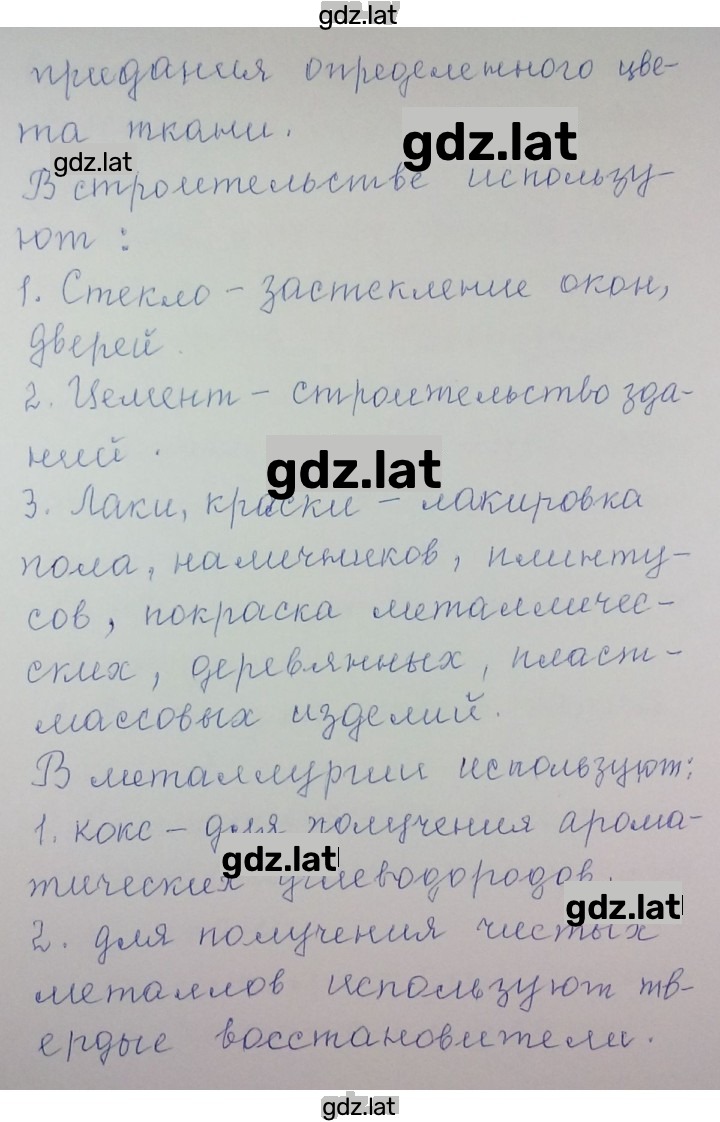 gdz.lat
придания определенного цве-
та ткани.
gdz.lat
gdz.lat
В строительстве использу-
ют:
1. Стекло – застекление окон,
дверей.
2. Цемент – строительство зда-
ний.
gdz.lat
3. Лаки, краски – лакировка
пола, наличников, плинту-
сов, покраска металличес-
ских, деревянных, пласт-
массовых изделий.
В металлургии используют:
1. кокс – для получения арома-
gdz.lat
тических углеводородов.
gdz.lat
2. для получения чистых
металлов используют тв-
ердые восстановители.
gdz.lat